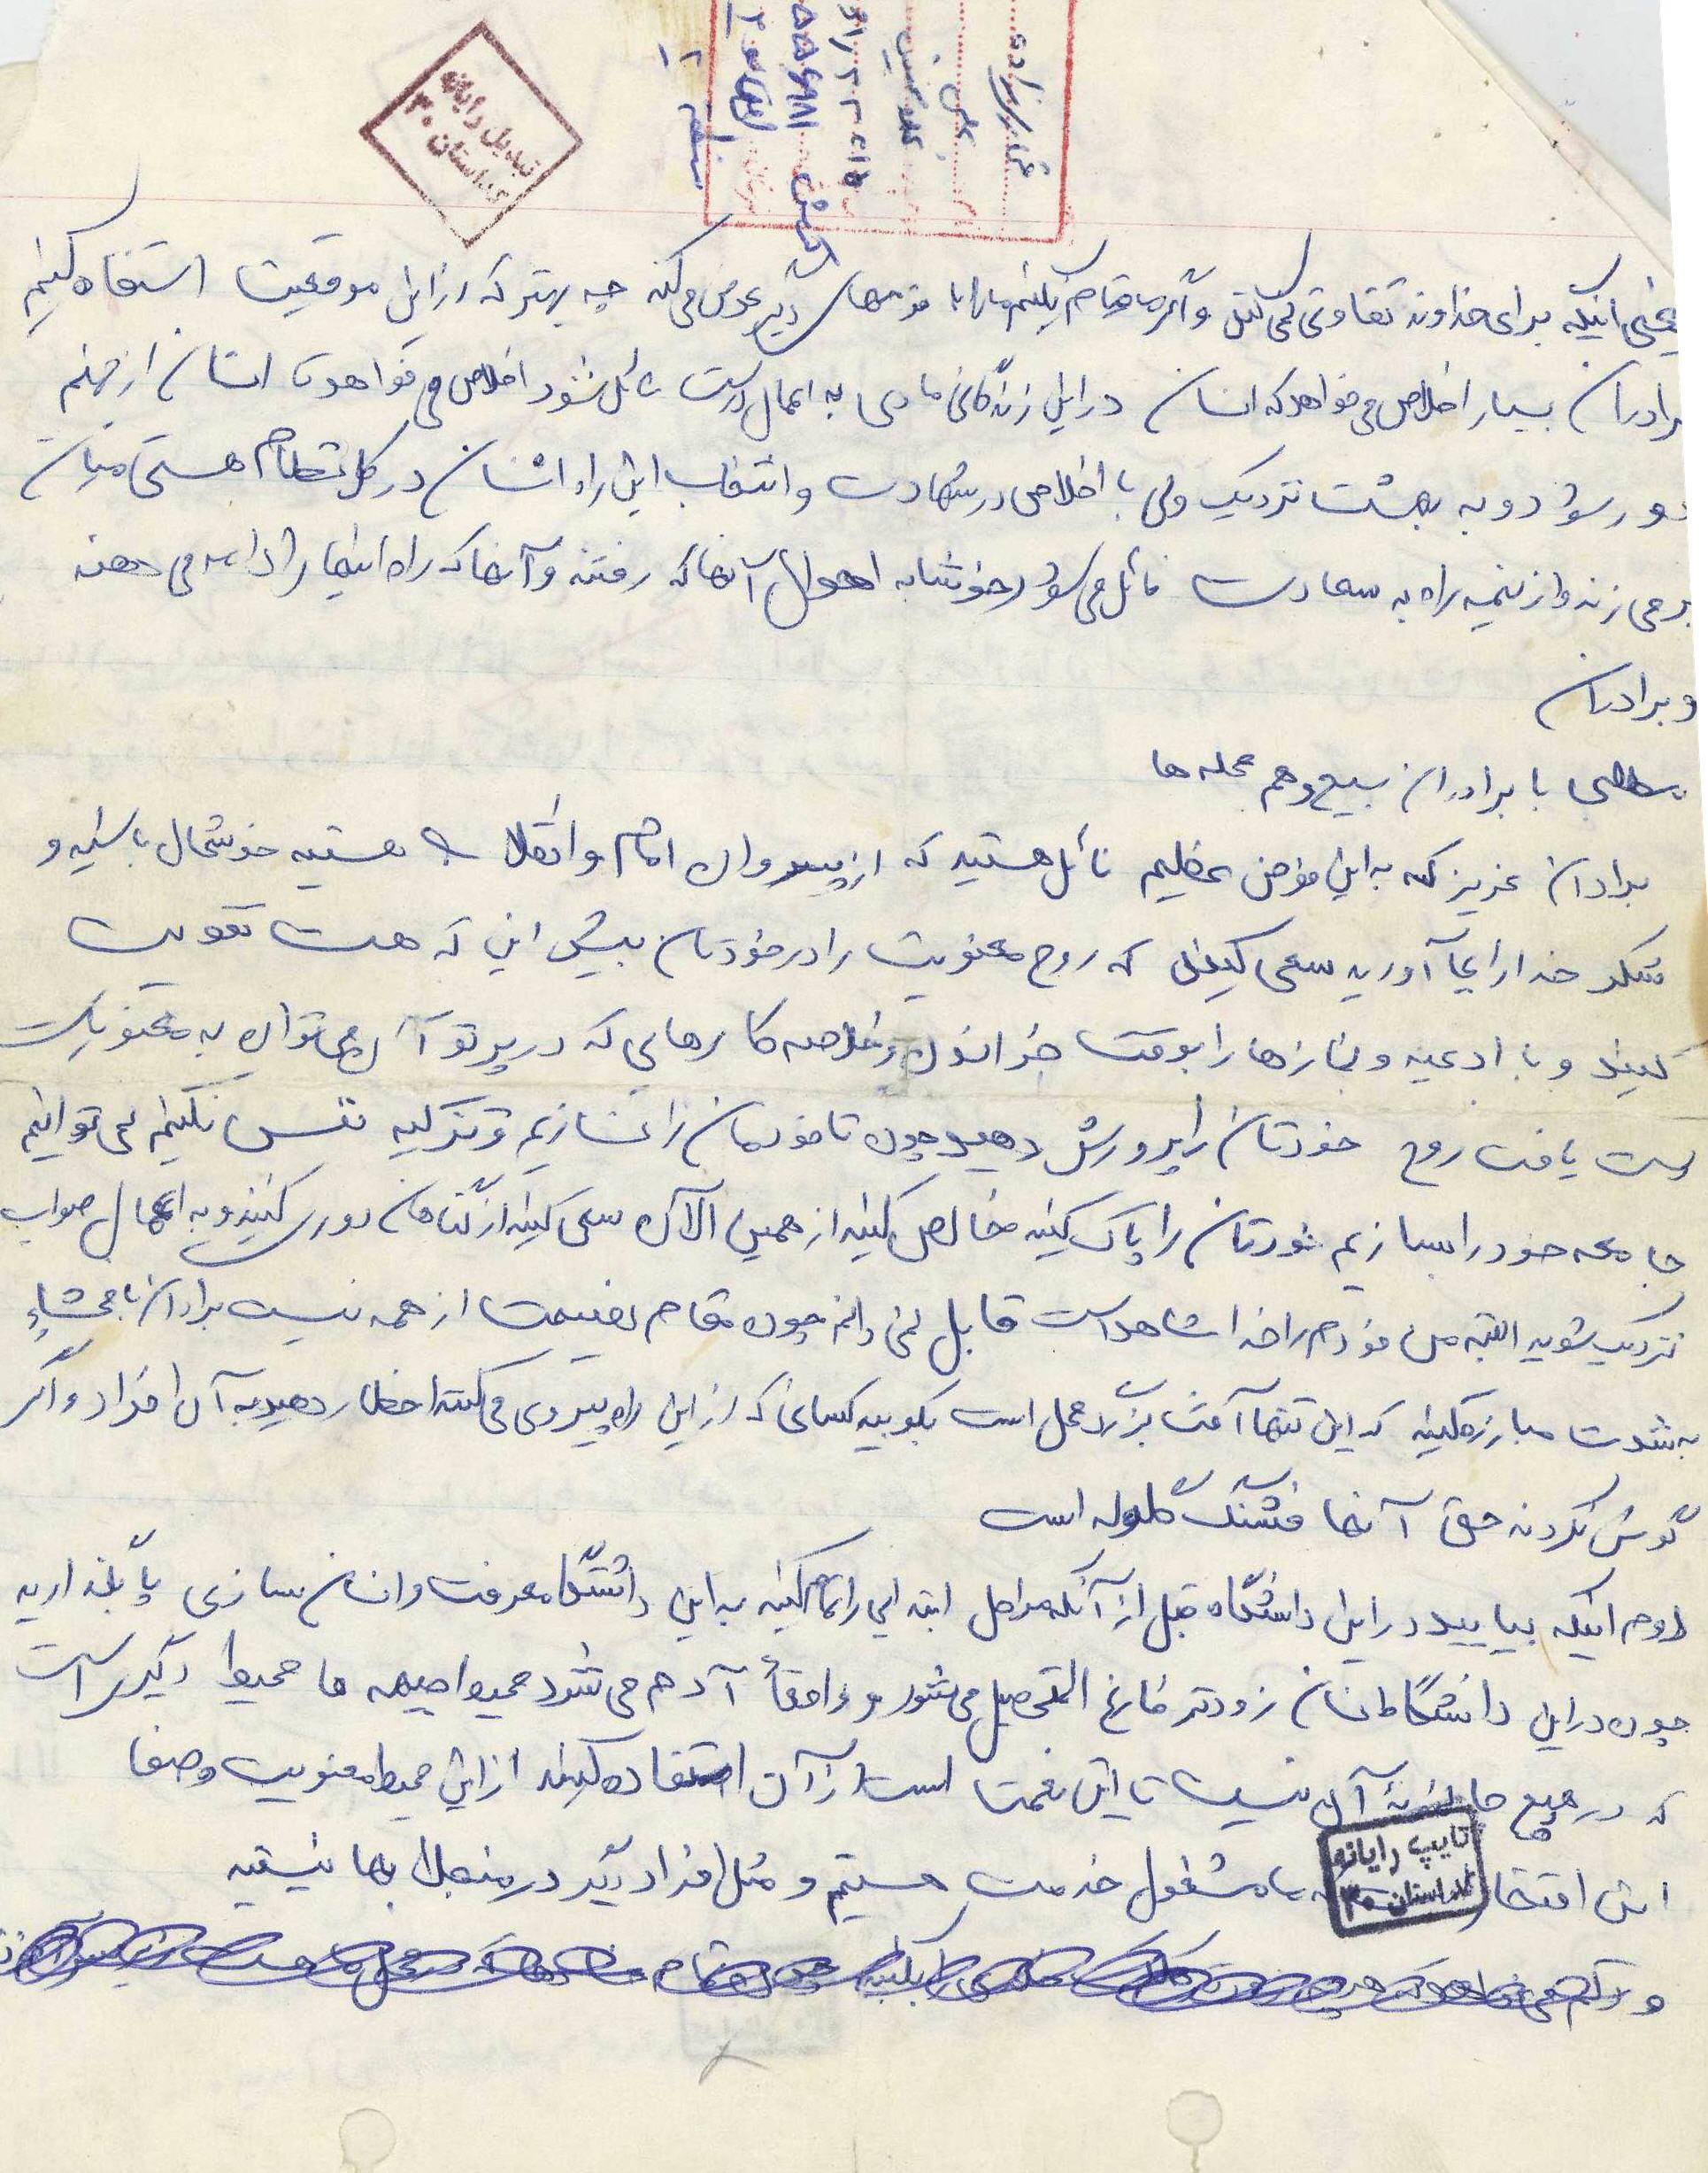 تبدیل رایانه
کد استان ۳۰
یعنی اینکه برای خداوند تفاوتی نمی کند و اگر ما قیام نکنیم ما را با قومهای دیگر عوض می کند چه بهتر که از این موقعیت استفاده کنیم
برادران بسیار اخلاص می خواهد که انسان در این زندگانی مادی به اعمال درست نائل شود اخلاص می خواهد تا انسان از جهنم
دور شود و به بهشت نزدیک ولی با اخلاص در شهادت و انتخاب این راه انسان در کل نظام هستی میان
بر می زند و از نیمه راه به سعادت نائل می شود خوشا به احوال آنها که رفتند و آنها که راه اینها را ادامه می دهند
و برادران
مطلبی با برادران بسیج و هم محله ها
برادران عزیز که به این فوض عظیم نائل هستید که از پیروان امام و انقلاب هستید خوشحال باشید و
شکر خدا را بجا آورید سعی کنید که روح معنویت را در خودتان بیش این که هست تقویت
کنید و با ادعیه و نمازها را بوقت خواندن و خلاصه کارهایی که در پرتو آن می توان به معنویت
دست یافت روح خودتان را پرورش دهید چون تا خودمان را نسازیم و تزکیه نفس نکنیم نمی توانیم
جامعه خود را بسازیم خودتان را پاک کنید خالص کنید از همین الآن سعی کنید از گناهان دوری کنید و به اعمال صواب
نزدیک شوید البته من خودم را خدا شاهد است قابل نمی دانم چون مقام نصیحت از همه نیست برادران با فحشاء
به شدت مبارزه کنید که این تنها آفت بزرگ عمل است بگویید کسانی که از این راه پیروی می کنند اخطار دهید به آن افراد و اگر
گوش نکردند حق آنها فشنگ گلوله است
دوم اینکه بیایید در این دانشگاه قبل از آنکه مراحل ابتدایی را تمام کنید به این دانشگاه معرفت و انسان سازی پا بگذارید
چون در این دانشگاه انسان زودتر فارغ التحصیل می شود و واقعاً آدم می شود محیط جبهه ها محیط دیگری است
که در هیچ جا آن نیست تا این نعمت است از آن استفاده کنید از این محیط معنویت و صفا
این افتخار ما مشغول خدمت هستیم و مثل افراد دیگر در منجلاب ها نیستیم
تایپ رایانه
کد استان ۳۰